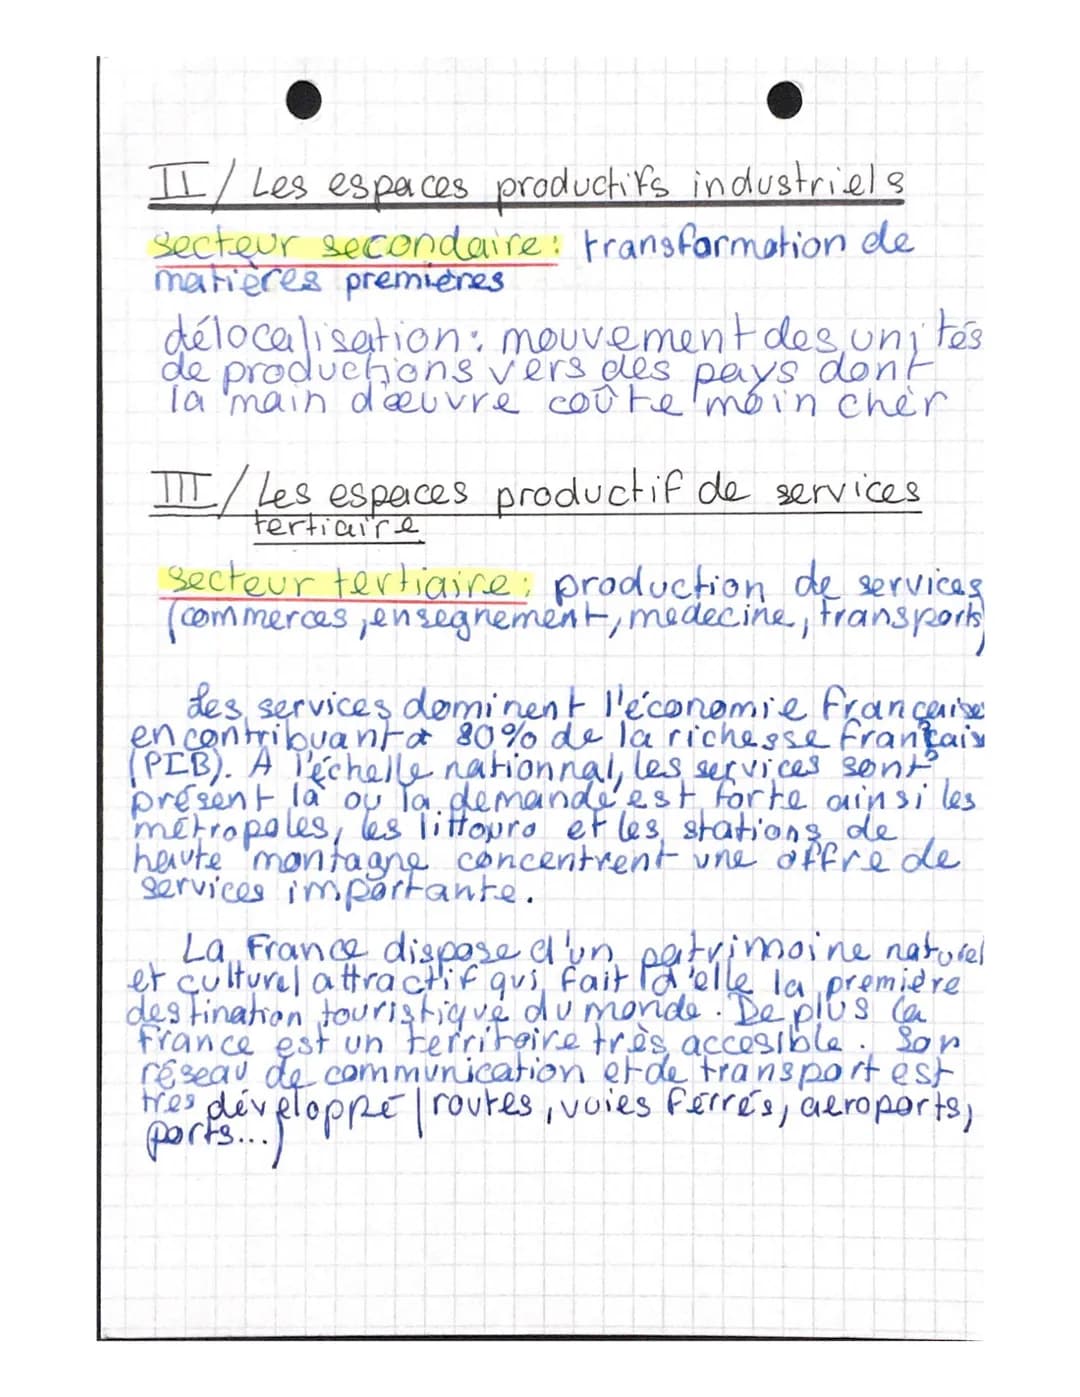 II/ Les espaces productifs industriels
secteur secondaire: transformation de
matières premières
délocalisation: mouvement des unités
de productions vers des pays dont
la main d'œuvre coûte moin cher
III/ Les espaces productif de services
tertiaire
secteur tertiaire: production de services
(commerces, ensegnement, medecine, transports)
Les services dominent l'économie française
en contribuant à 80% de la richesse français
(PIB). A l'échelle nationnal, les services sont
présent là ou la demande est forte ainsi les
métropoles, les littouro et les stations de
haute montagne concentrent une offre de
services importante.
La France dispose d'un patrimoine naturel
et culturel attractif qui fait d'elle la première
destination touristique du monde. De plus la
France est un territoire très accesible. Son
réseau de communication et de transport est
tres développé (routes, voies ferrés, aeroports,
ports...)